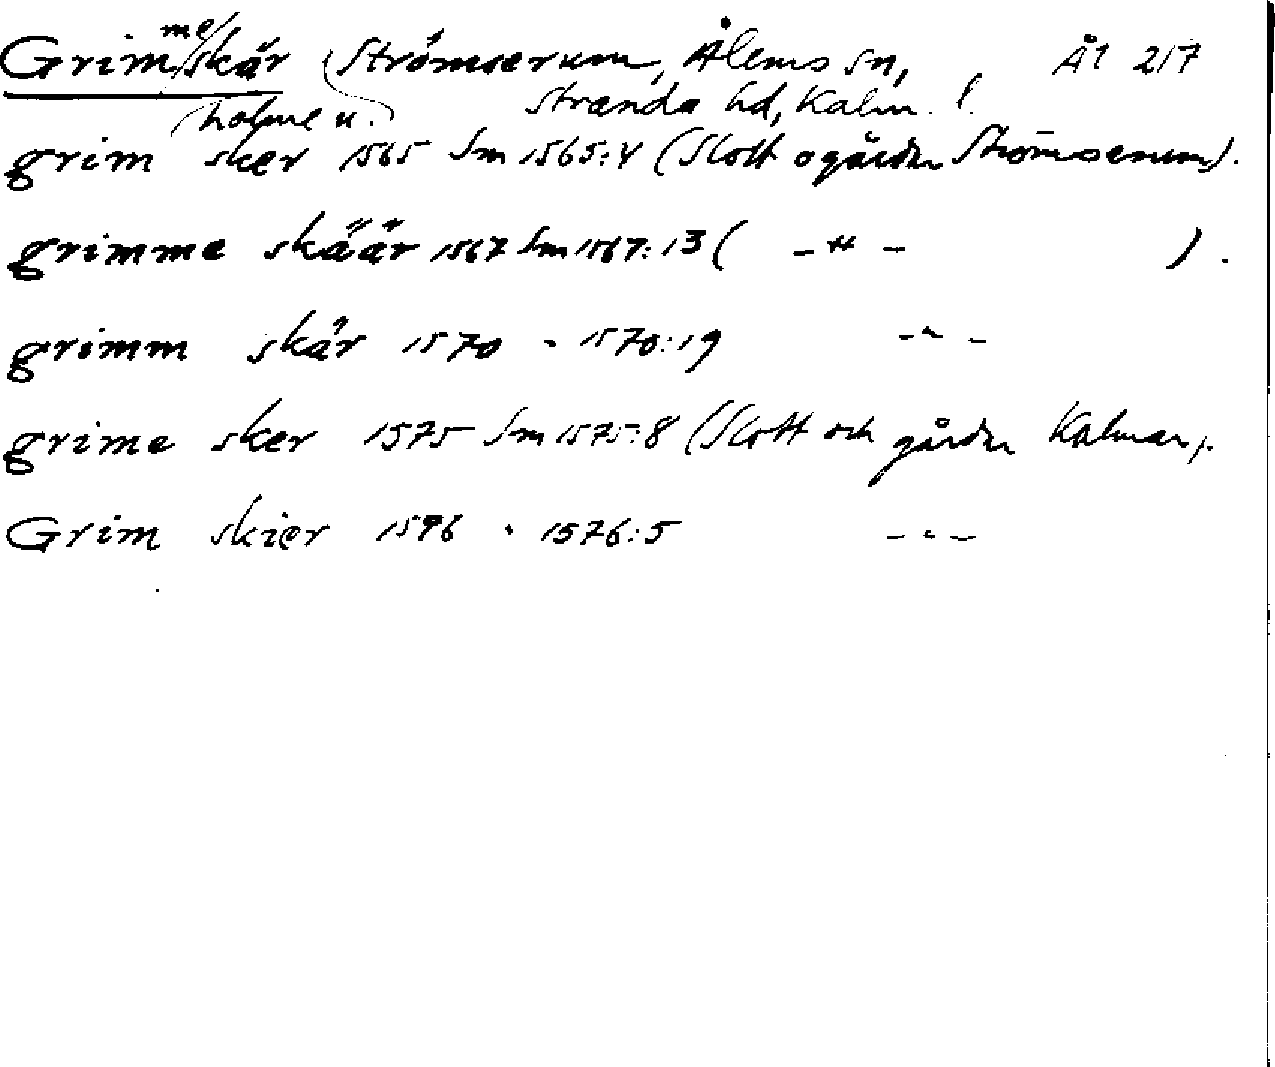 Grimmeskär (Strömserum, Ålems sn, Ål 217
(holme u.) Stranda hd, Kalm. l.
grim sker 1565 Sm 1565:4 (Slott o gårdar Strömserum).
grimme skäär 1567 Sm 1567:13 ( – " – ).
grimm skär 1570 - 1570:19 – " –
grime sker 1575 Sm 1575:8 (Slott och gårdar Kalmar).
Grim skier 1576 " 1576:5 – " –